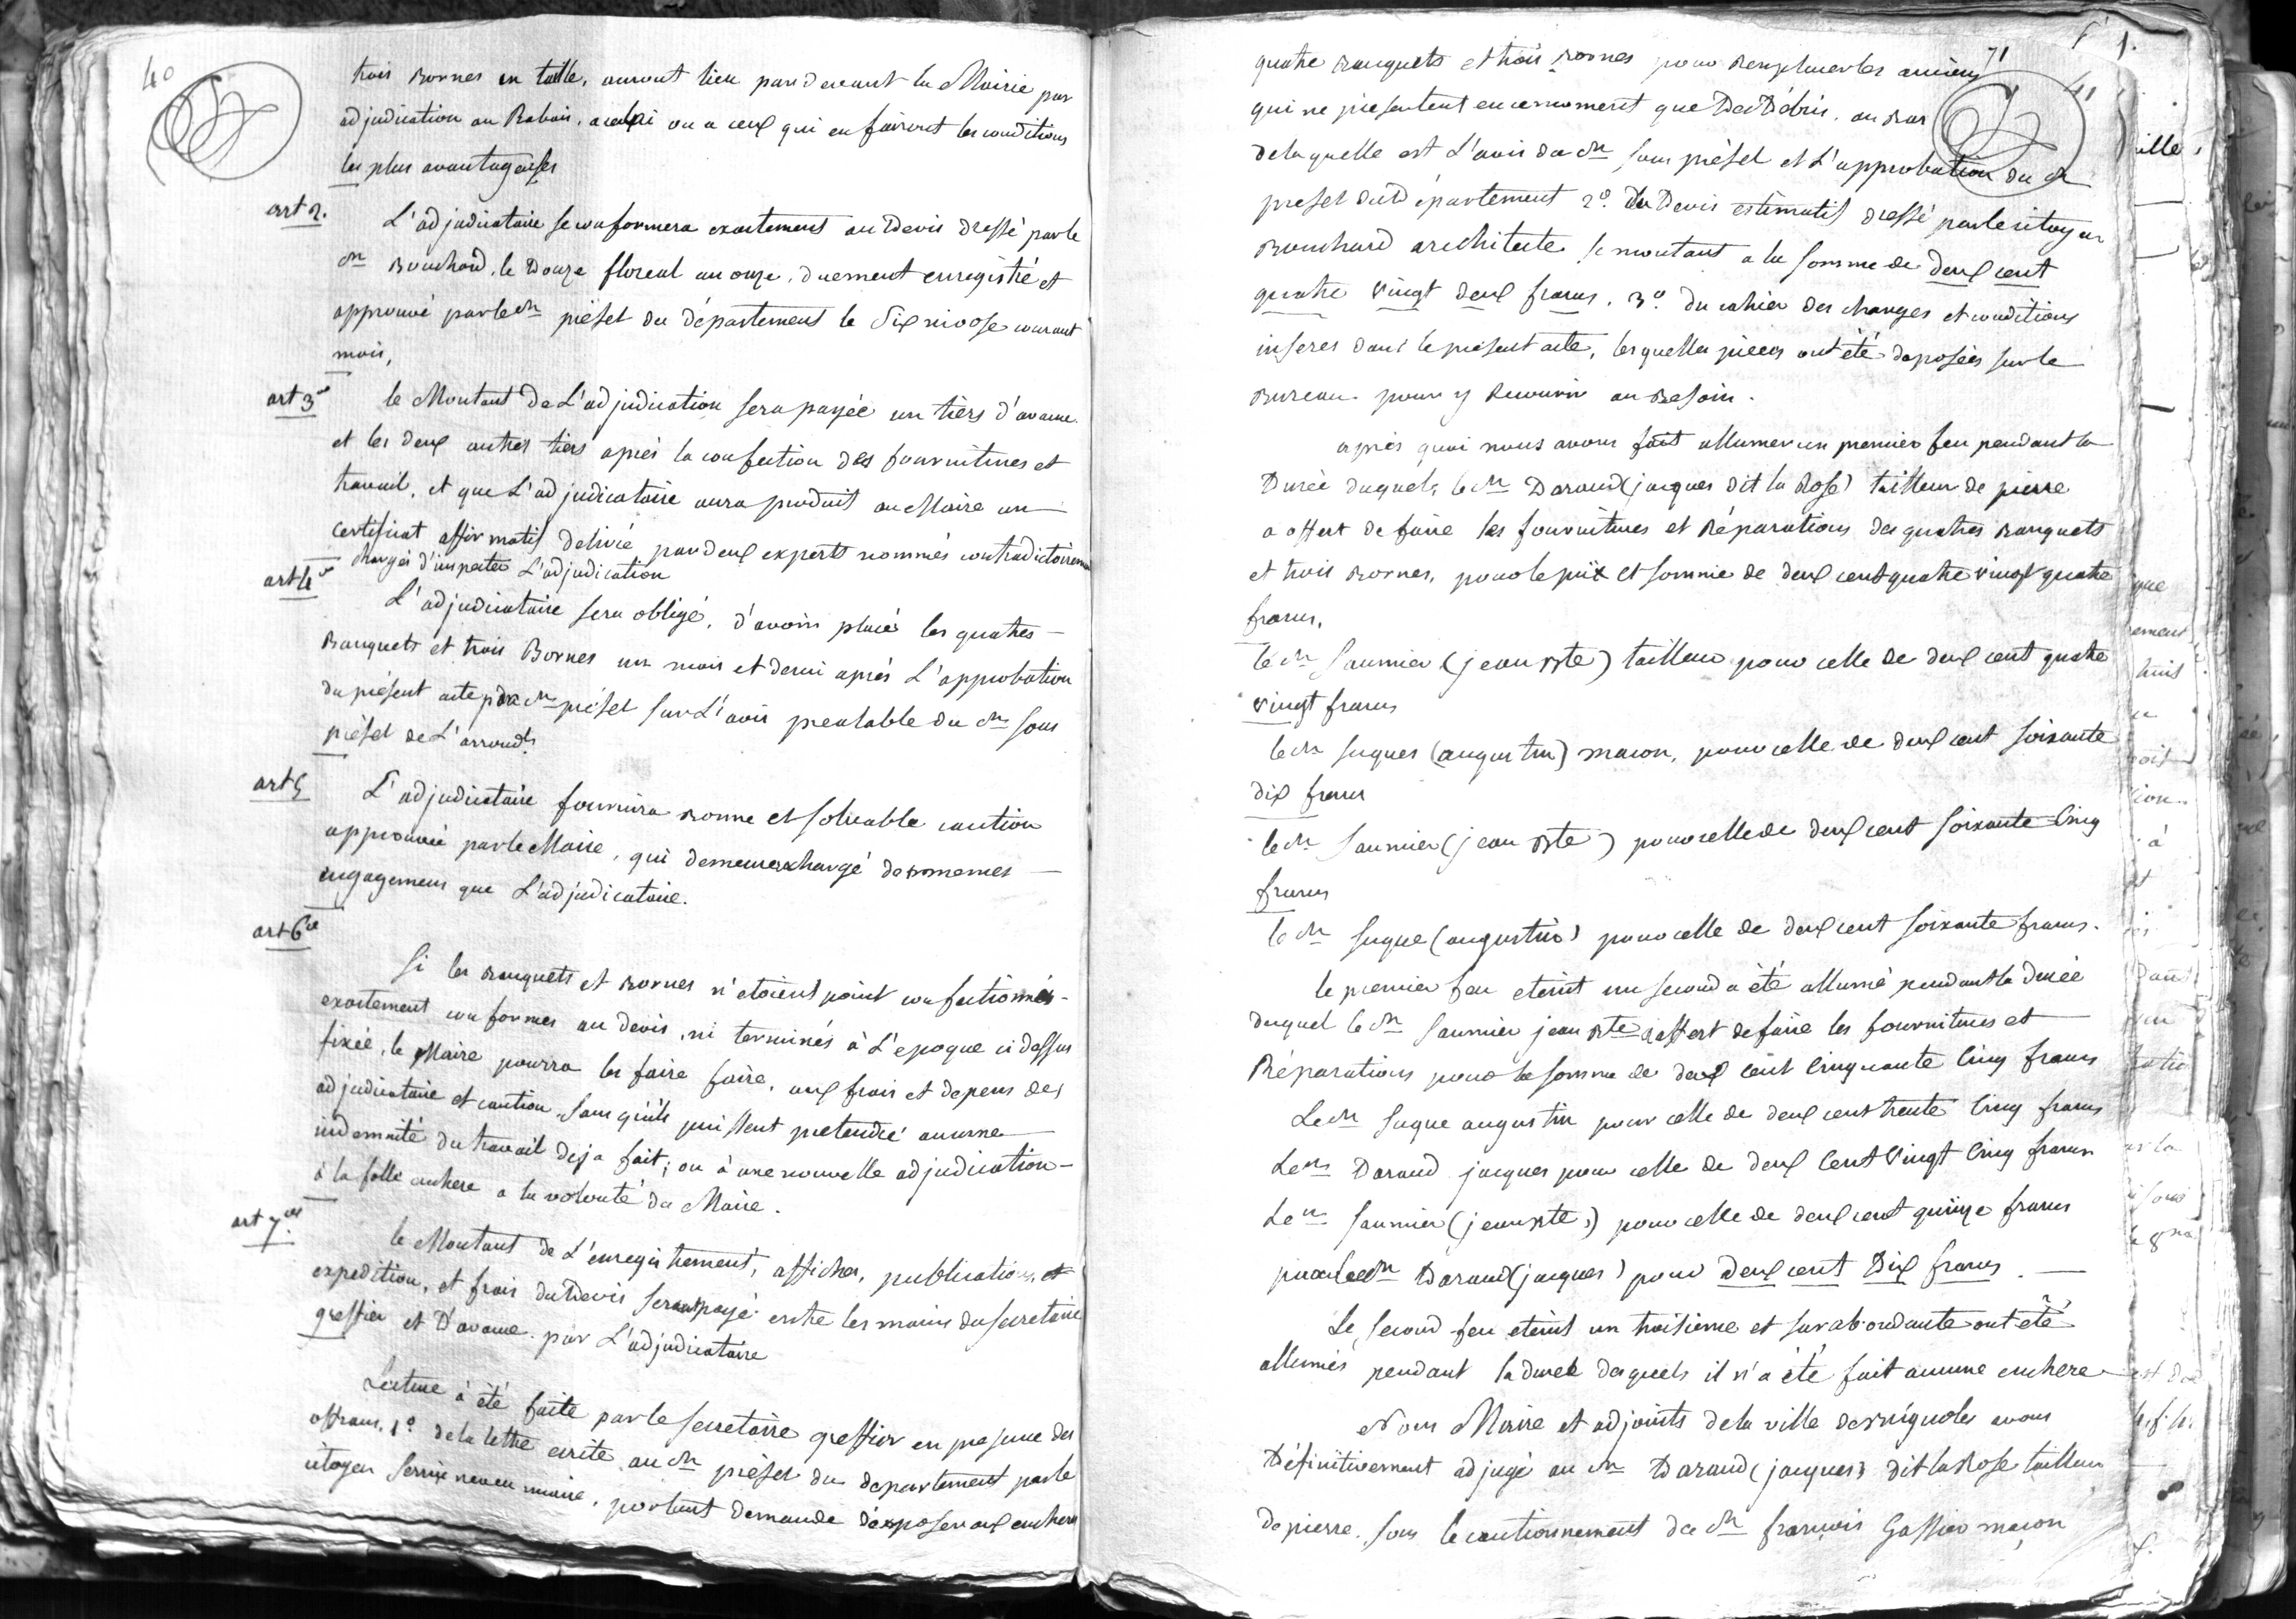 40
trois Bornes en taille, auront lieu pardevant la Mairie par
adjudication au Rabais, a celui ou a ceux qui en fairont les conditions
les plus avantageuses
art 2.
L'adjudicataire se conformera exactement au Devis Dressé par le
cn Bouchard, le Douze floreal an onze, duement enregistré et
approuvé par le cn préfet du département le Six nivose courant
mois,
art 3e
le Montant de L'adjudication sera payée un tiers d'avance
et les deux autres tiers après la confection des fournitures et
travail, et que L'adjudicataire aura produit au Maire un
certificat affirmatif délivré par deux experts nommés contradictoirement
chargés d'inspecter L'adjudication
art 4e
L'adjudicataire sera obligé, d'avoir placés les quatres
Banquets et trois Bornes un mois et demi après L'approbation
du présent acte par cn préfet sur L'avis prealable du cn sous
préfet de L'arrondt
art 5
L'adjudicataire fournira bonne et solvable caution
approuvée par le Maire, qui demeurera chargé des memes
engagemens que L'adjudicataire.
art 6e
Si les Banquets et Bornes n'etoient point confectionnés
exactement conformes au devis, ni terminés à L'epoque ci dessus
fixée, le Maire pourra les faire faire, aux frais et depens des
adjudicataire et caution, sans qu'ils puissent pretendre aucune
indemnité du travail deja fait; ou à une nouvelle adjudication
à la folle enchere a la volonté du Maire.
art 7e.
le Montant de L'enregistrement, affiches, publications, et
expedition, et frais du Devis seront payé entre les mains du secretaire
greffier et D'avance par L'adjudicataire
Lecture à été faite par le secretaire greffier en presence des
offrans, 1º de la lettre ecrite au cn préfet du departement par le
citoyen maire, portant demande d'exposer aux encheres
71
quatre Banquets et trois Bornes pour Remplacer les anciens
qui ne présentent en ce moment que Des Débris, au Bas
de laquelle est L'avis du cn sous préfet et L'approbation du cn
prefet du Département 2º. Du Devis estimatif dressé par le citoyen
Bouchard architecte se montant a la somme de deux cent
quatre vingt deux francs. 3º du cahier des charges et conditions
inseres dans le présent acte, lesquelles pièces ont été deposées sur le
Bureau pour y Recourir au Besoin.
après quoi nous avons fait allumer un premier feu pendant la
Durée duquel, le cn Daraud (jacques dit la Rose) tailleur de pierre
a offert de faire les fournitures et Réparations des quatres Banquets
et trois Bornes, pour le prix et somme de deux cent quatre vingt quatre
francs,
le cn Saumier (jean Bte) tailleur pour celle de deux cent quatre
vingt francs
le cn Suques (augustin) macon, pour celle de deux cent soixante
dix francs
le cn Saumier (jean Bte) pour celle de deux cent soixante Cinq
francs
le cn Suque (augustin) pour celle de deux cent soixante francs.
le premier feu eteint un second a été allumé pendant la durée
duquel le cn Saumier jean Bte a offert de faire les fournitures et
Réparations pour la somme de deux cent Cinquante Cinq francs
Le cn Suque augustin pour celle de deux cent trente Cinq francs
Le cn Daraud jacques pour celle de deux Cent Vingt Cinq francs
Le cn Saumier (jean Bte,) pour celle de deux cent quinze francs
par le cn Daraud (jacques) pour deux cent Dix francs.
Le second feu eteint un troisieme et surabondante ont été
allumés pendant la durée desquels il n'a été fait aucune enchere
Nous Maire et adjoints de la ville de Brignoles avons
Définitivement adjugé au cn Daraud (jacques) dit la Rose tailleur
de pierre, sous le cautionnement de cn françois Gassier maçon